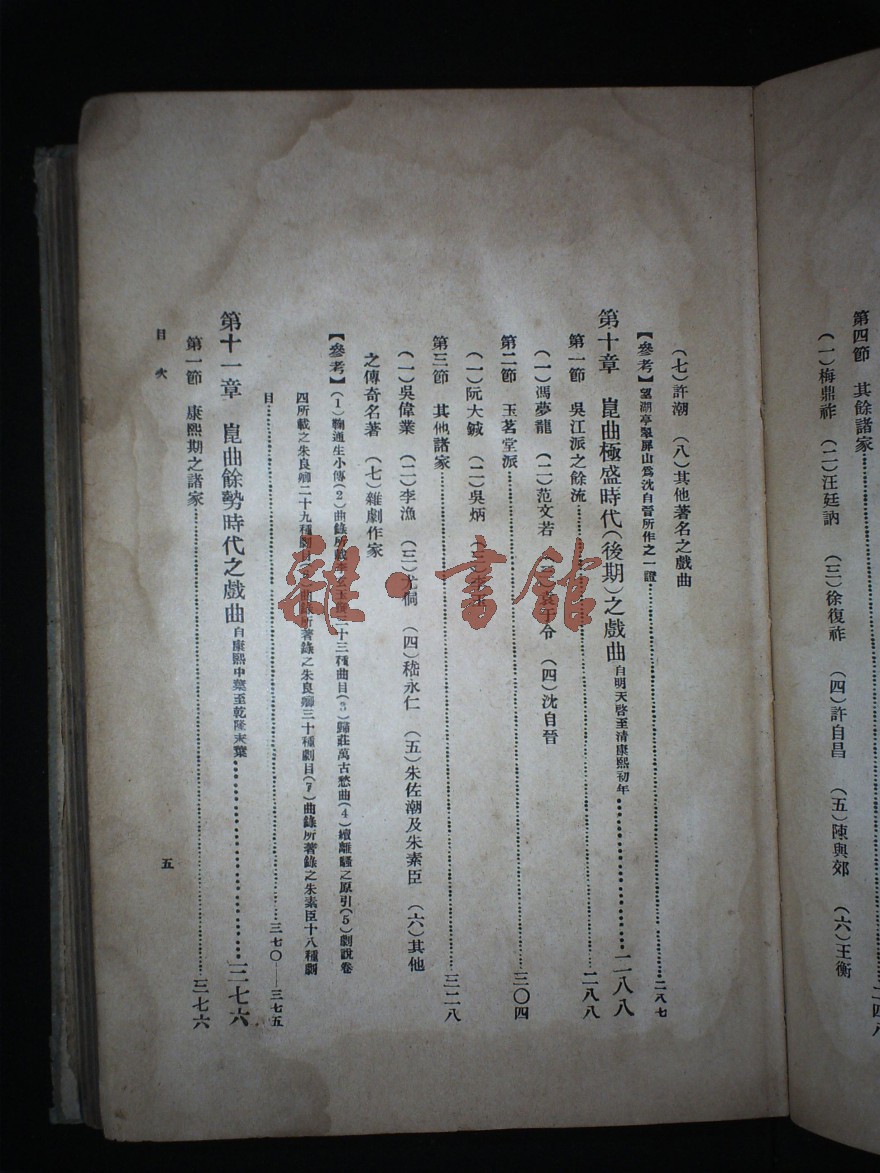 第四節　其餘諸家……二四八
（一）梅鼎祚　（二）汪廷訥　（三）徐復祚　（四）許自昌　（五）陳與郊　（六）王衡
（七）許潮　（八）其他著名之戲曲
【參考】望湖亭翠屏山爲沈自晉所作之一證……二八七
第十章　崑曲極盛時代（後期）之戲曲自明天啓至清康熙初年……二八八
第一節　吳江派之餘流……二八八
（一）馮夢龍　（二）范文若　（三）袁于令　（四）沈自晉
第二節　玉茗堂派……三〇四
（一）阮大鋮　（二）吳炳　（三）李玉
第三節　其他諸家……三二八
（一）吳偉業　（二）李漁　（三）尤侗　（四）嵇永仁　（五）朱佐潮及朱素臣　（六）其他
之傳奇名著　（七）雜劇作家
【參考】（1）鞠通生小傳（2）曲錄所載李玄玉三十三種曲目（3）歸莊萬古愁曲（4）續離騷之原引（5）劇說卷
四所載之朱良卿二十九種劇目（6）曲錄所著錄之朱良卿三十種劇目（7）曲錄所著錄之朱素臣十八種劇
目……三七〇——三七五
第十一章　崑曲餘勢時代之戲曲自康熙中葉至乾隆末葉……三七六
第一節　康熙期之諸家……三七六
目　次　五
雜·書館